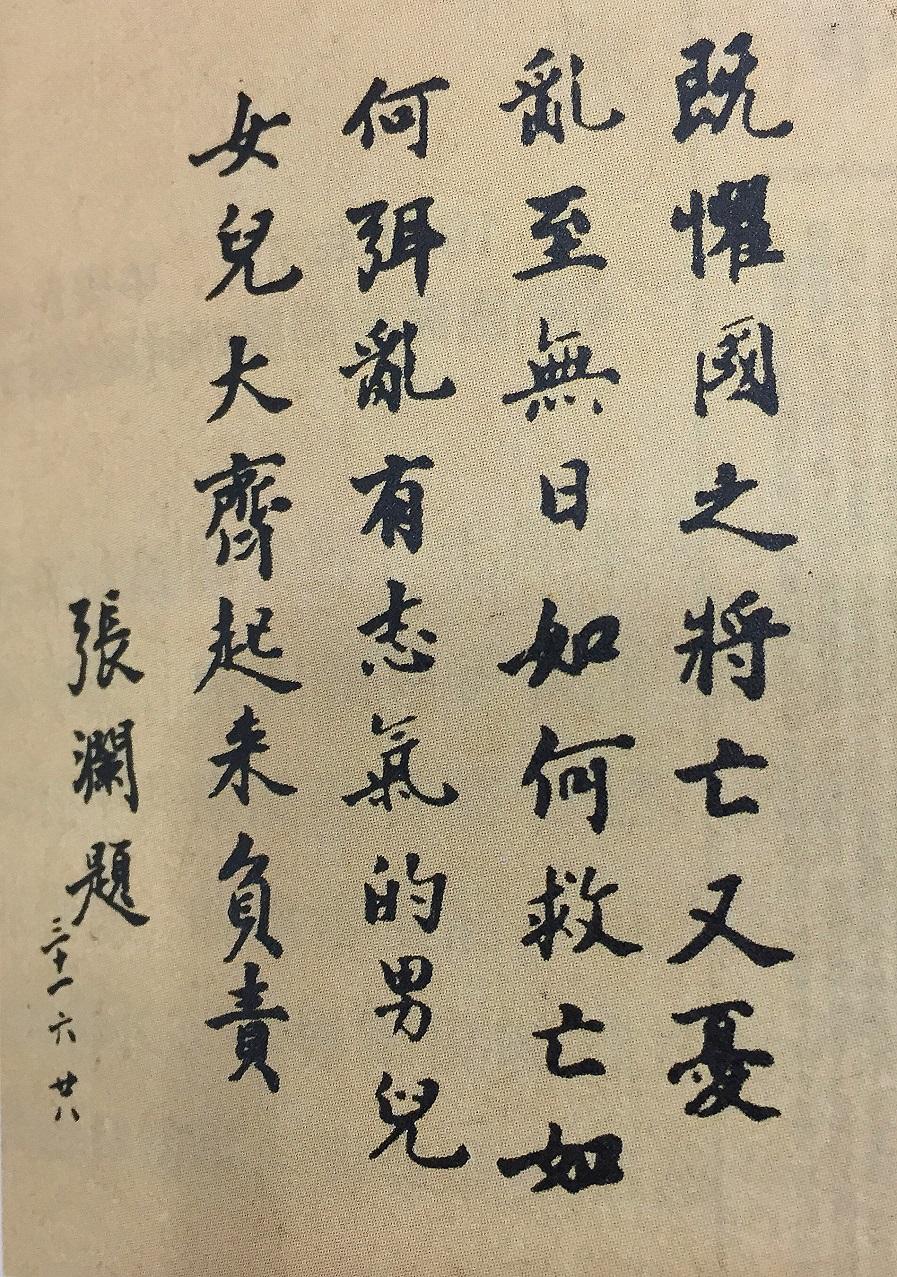 既懼國之將亡又憂
亂至無日如何救亡如
何弭亂有志氣的男兒
女兒大齊起来負責
張瀾題
三十一 六 廿八